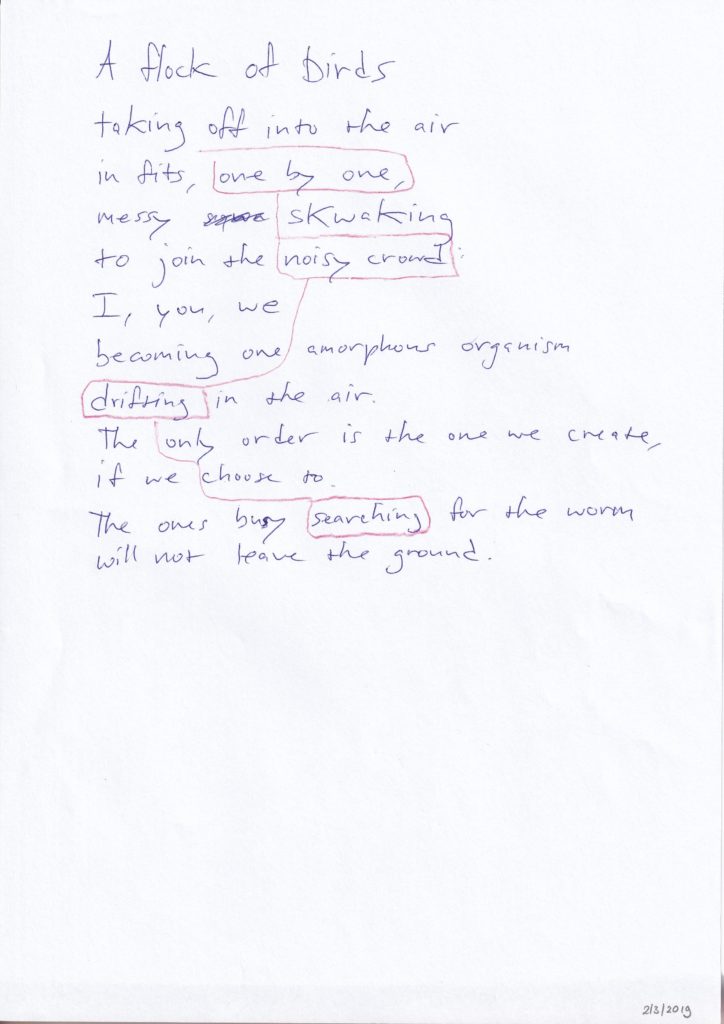 A flock of birds
taking off into the air
in fits, one by one,
messy skwaking
to join the noisy crowd:
I, you, we
becoming one amorphous organism
drifting in the air.
The only order is the one we create,
if we choose to.
The ones busy searching for the worm
will not leave the ground.
2/3/2019